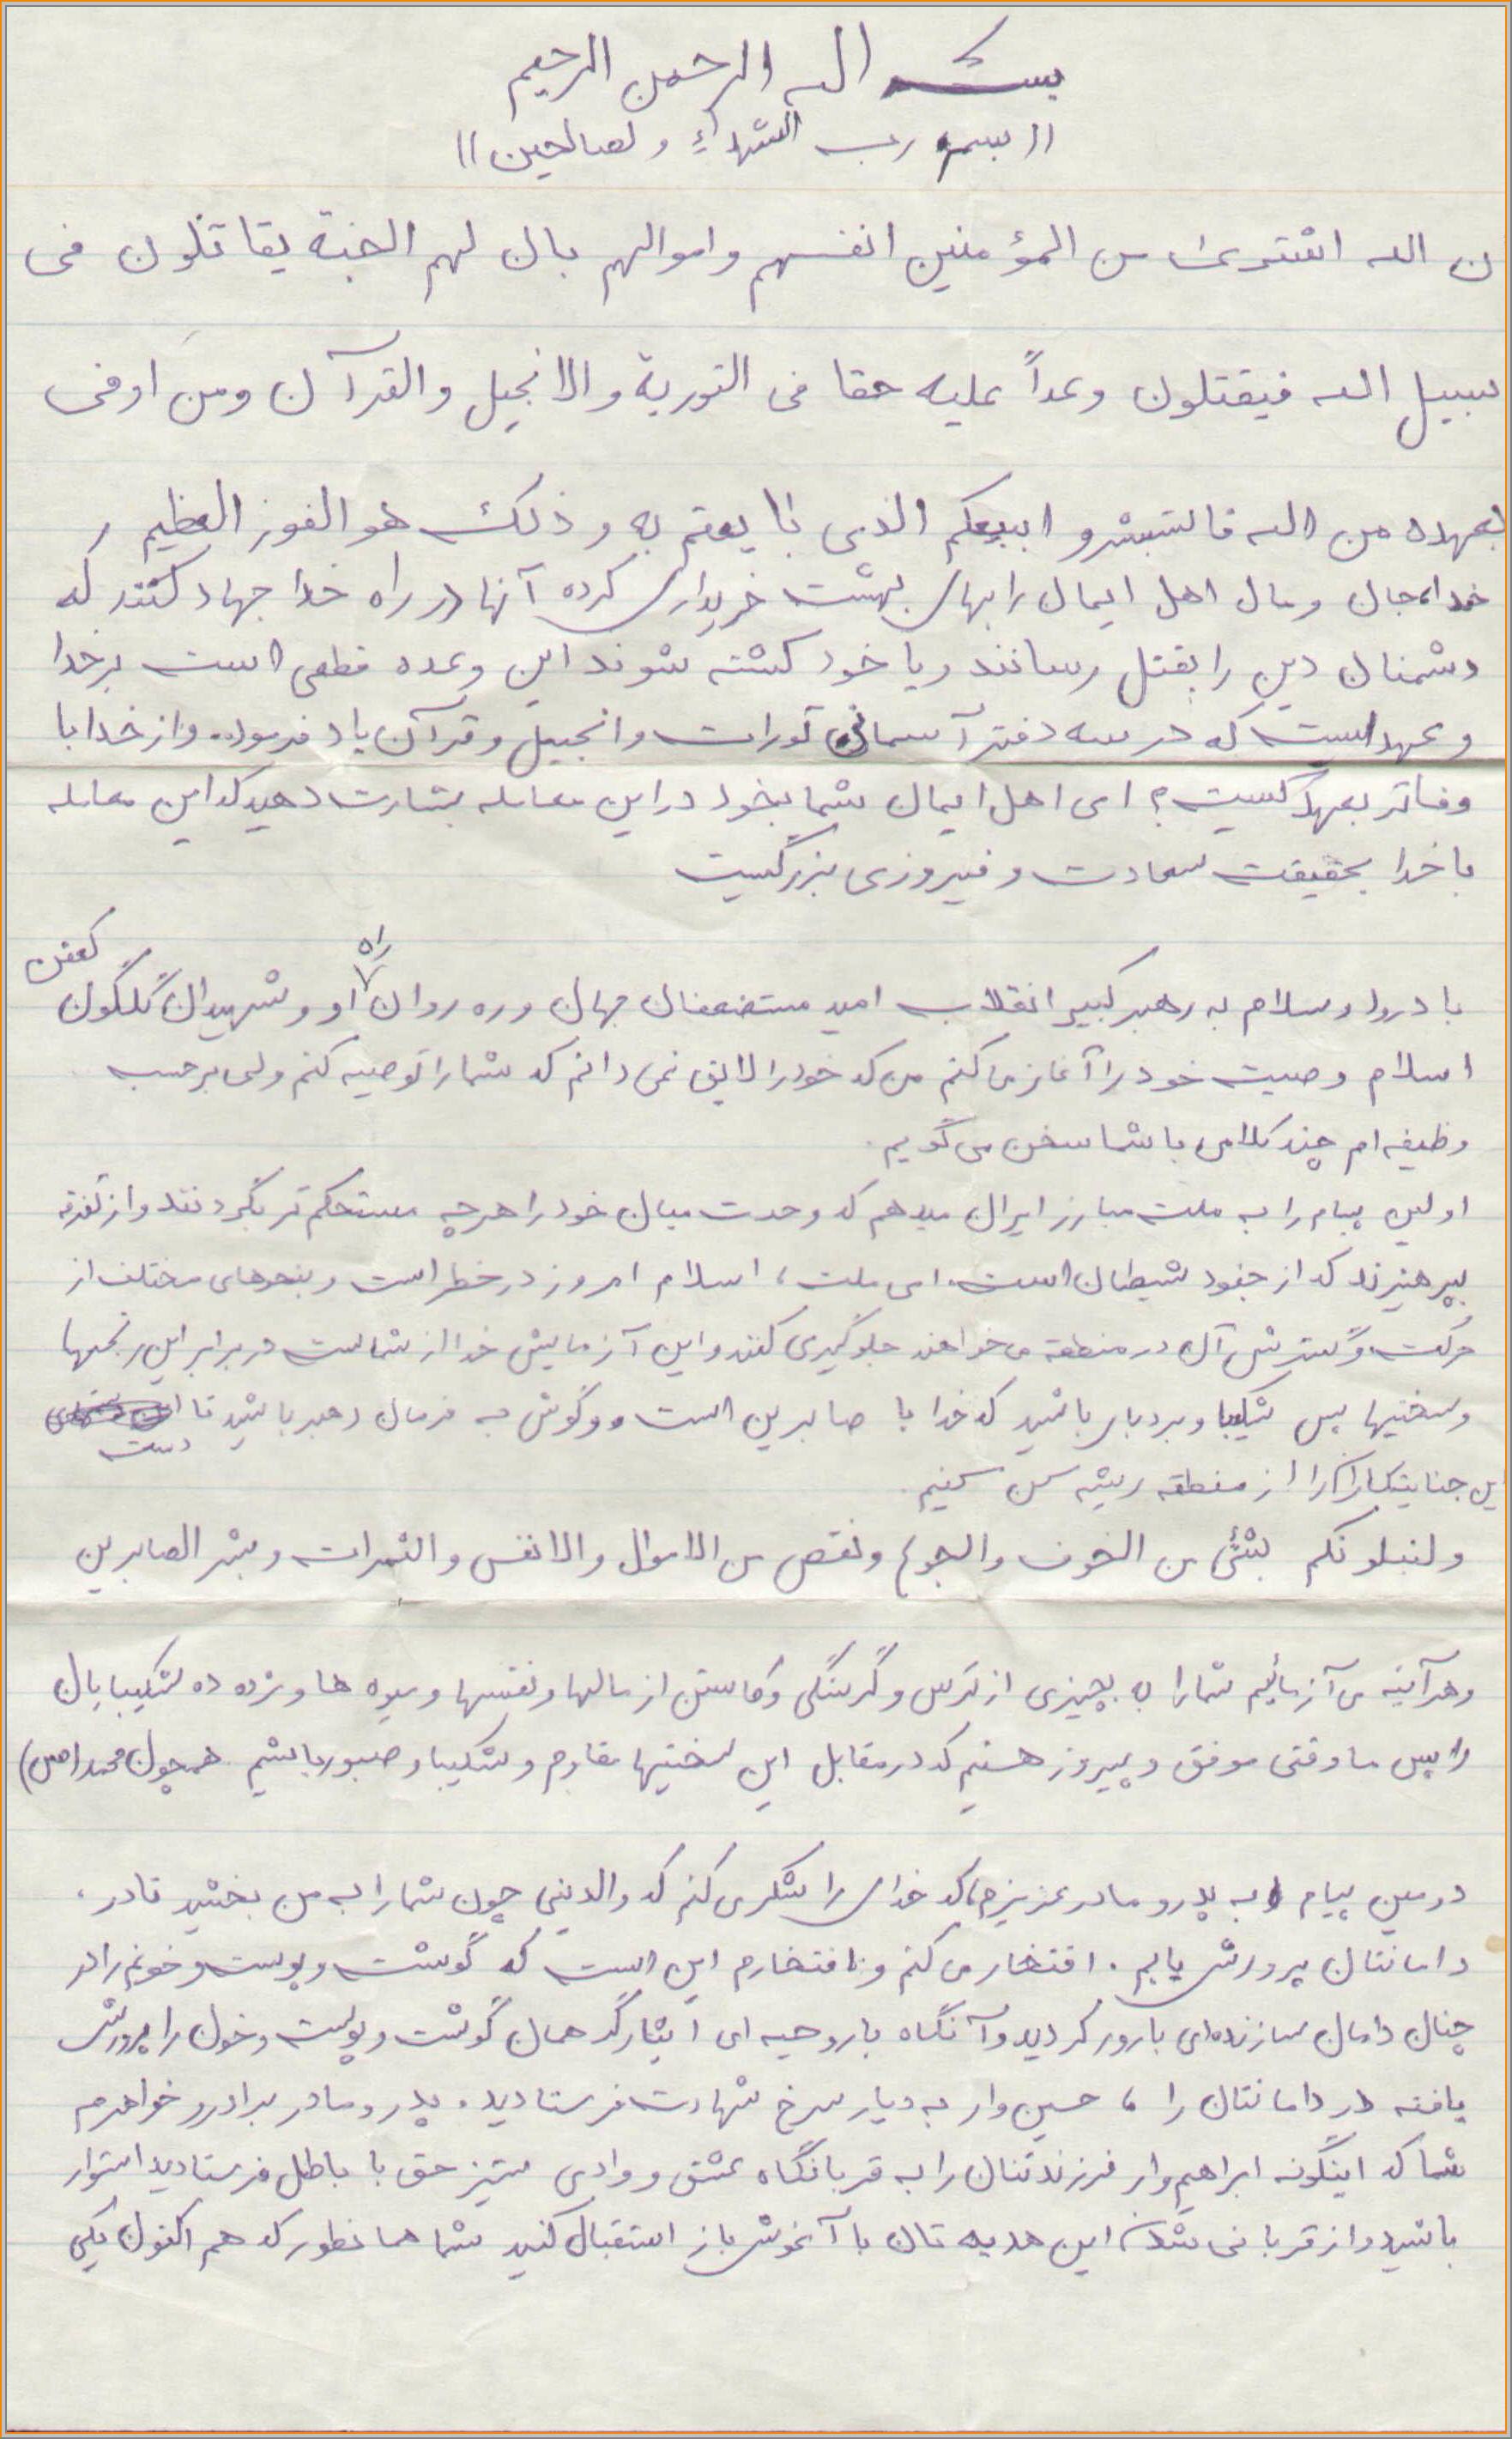 بسم الله الرحمن الرحیم
((بسم رب الشهداء و لصالحین))
ن الله اشتری من المؤمنین انفسهم واموالهم بان لهم الجنة یقاتلون فی
سبیل الله فیقتلون وعداً علیه حقا فی التوریة والانجیل والقرآن ومن اوفی
بعهده من الله فاستبشرو اببیعکم الذی بایعتم به و ذلک هو الفوز العظیم ر
خدا، جان و مال اهل ایمان را بهای بهشت خریداری کرده آنها در راه خدا جهاد کنند که
دشمنان دین را بقتل رسانند و یا خود کشته شوند این وعده قطعی است بر خدا
و عهدیست که در سه دفتر آسمانی تورات و انجیل و قرآن یاد فرموده. و از خدا با
وفاتر بعهد کیست؟ ای اهل ایمان شما بخود در این معامله بشارت دهید که این معامله
با خدا بحقیقت سعادت و فیروزی بزرگیست
با درود و سلام به رهبر کبیر انقلاب امید مستضعفان جهان و ره روان راه او و شهیدان گلگون کفن
اسلام وصیت خود را آغاز می کنم من که خود را لایق نمی دانم که شما را توصیه کنم ولی بر حسب
وظیفه ام چند کلامی با شما سخن می گویم.
اولین پیام را به ملت مبارز ایران میدهم که وحدت میان خود را هر چه مستحکم تر بگردنند و از تفرقه
بپرهیزند که از جنود شیطان است. ای ملت، اسلام امروز در خطر است و بنحوهای مختلف از
حرکت و گسترش آن در منطقه می خواهند جلوگیری کنند و این آزمایش خدا از شماست در برابر این رنجها
و سختیها پس شکیبا و بردبار باشید که خدا با صابرین است و گوش به فرمان رهبر باشید تا دست
این جنایتکاران را از منطقه ریشه کن کنیم.
ولنبلونکم بشئی من الخوف والجوع ونقص من الاموال والانفس والثمرات و بشر الصابرین
و هر آینه می آزمائیم شما را به چیزی از ترس و گرسنگی و کاستن از مالها و نفسها و میوه ها و مژده ده شکیبایان
را پس ما وقتی موفق و پیروز هستیم که در مقابل این سختیها مقاوم و شکیبا و صبور باشیم همچون محمد (ص)
دومین پیام به پدر و مادر عزیزم که خدای را شکر می کنم که والدینی چون شما را به من بخشید تا در
دامانتان پرورش یابم. افتخار می کنم و افتخارم این است که گوشت و پوست و خونم را در
چنان دامان سازنده ای بارور کردید و آنگاه با روحیه ای ایثارگر همان گوشت و پوست و خون را پرورش
یافته در دامانتان را، حسین وار به دیار سرخ شهادت فرستادید. پدر و مادر برادر و خواهرم
شما که اینگونه ابراهیم وار فرزندتان را به قربانگاه عشق و وادی ستیز حق با باطل فرستادید استوار
باشید و از قربانی شدن این هدیه تان با آغوش باز استقبال کنید شما همانطور که هم اکنون یکی